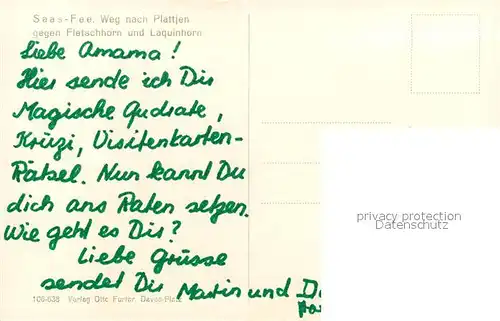 Saas-Fee. Weg nach Plattjen
gegen Fletschhorn und Laquinhorn
Liebe Amama!
Hier sende ich Dir
Magische Qudrate,
Krüzi, Visitenkarten-
Rätsel. Nun kannst Du
dich ans Raten setzen.
Wie geht es Dir?
Liebe Grüsse
sendet Dir Martin und
106-638 Verlag Otto Furter, Davos-Platz
privacy protection
www.ansichtskartenversand.com